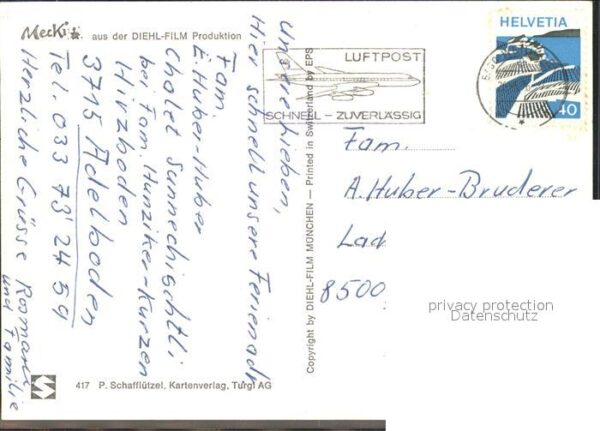 Mecki
aus der DIEHL-FILM Produktion
Unsere lieben,
Hier schnell unsere Ferienadr
Fam.
E. Huber-Huber
Chalet Sunneschischtli
bei Fam. Hunziker-Kurzen
Hirzboden
3715 Adelboden
Tel. 033 73 24 59
Herzliche Grüsse
und Familie
417 P. Schafflützel, Kartenverlag, Turgi AG
Copyright by DIEHL-FILM MÜNCHEN – Printed in Switzerland by EPS
LUFTPOST
SCHNELL – ZUVERLÄSSIG
HELVETIA
40
Fam.
A. Huber-Bruderer
Lad
8500
privacy protection
Datenschutz